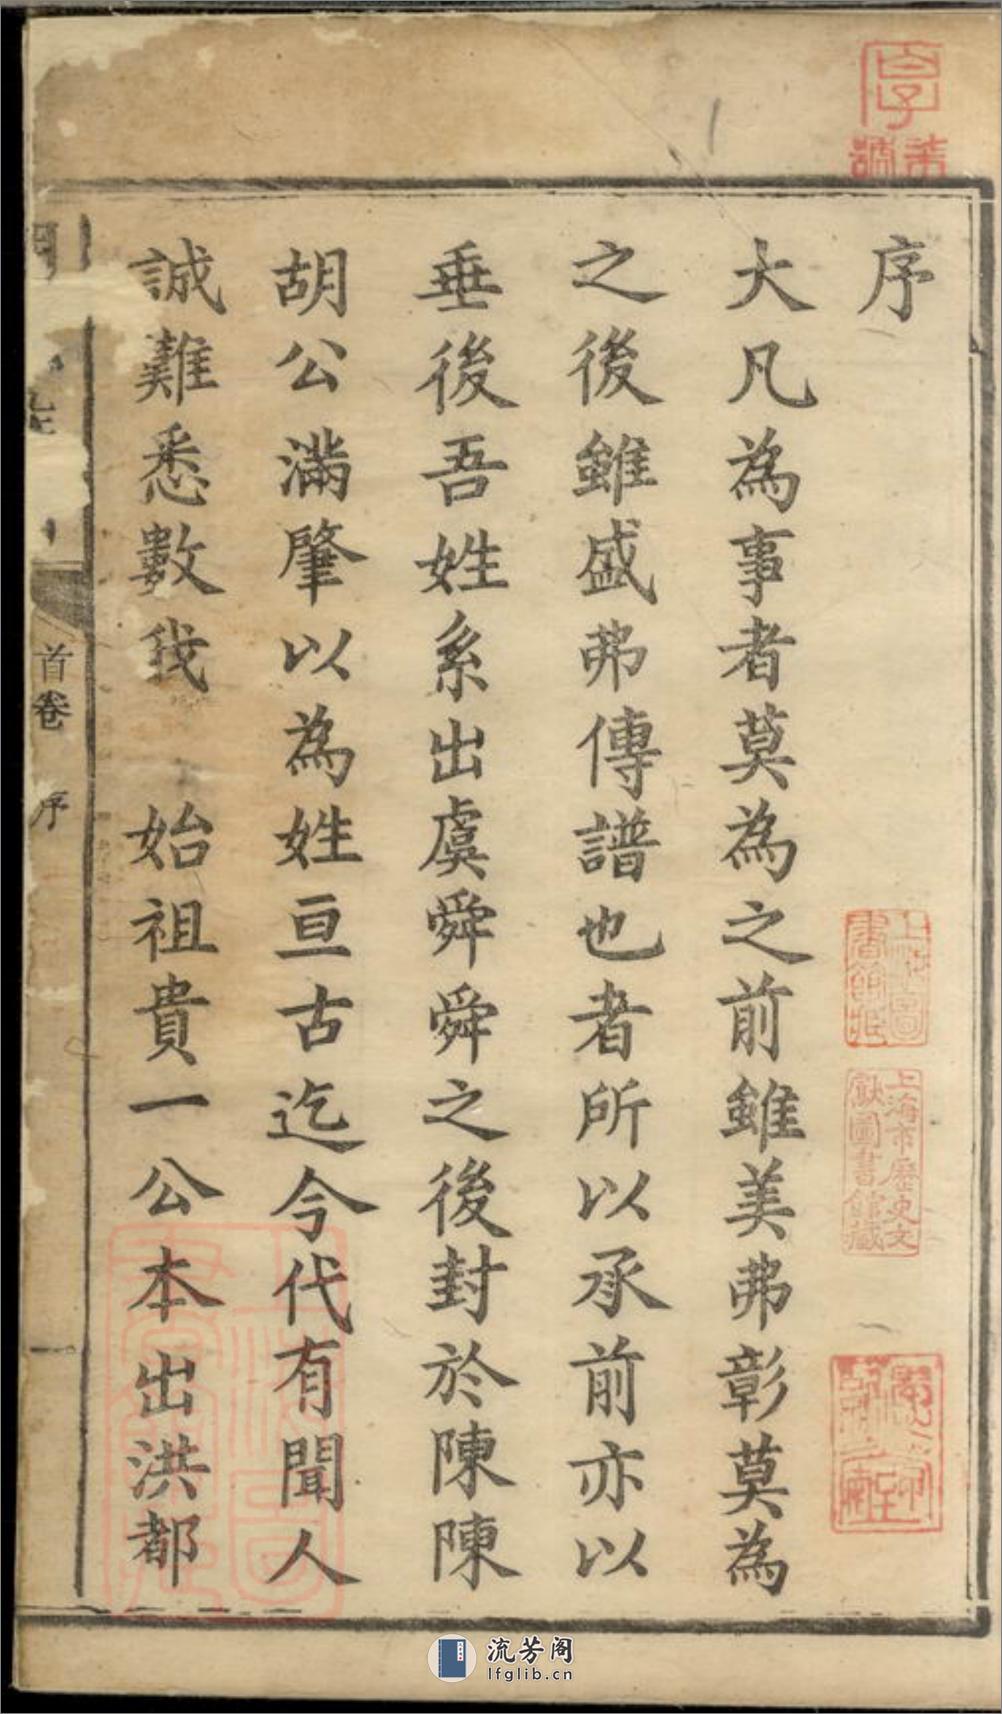 序
大凡為事者莫為之前雖美弗彰莫為
之後雖盛弗傳譜也者所以承前亦以
垂後吾姓系出虞舜舜之後封於陳陳
胡公滿肇以為姓亘古迄今代有聞人
誠難悉數我 始祖貴一公本出洪都
首卷 序 一
上海圖書館藏
上海市歷史文獻圖書館藏
流芳阁
lfglib.cn